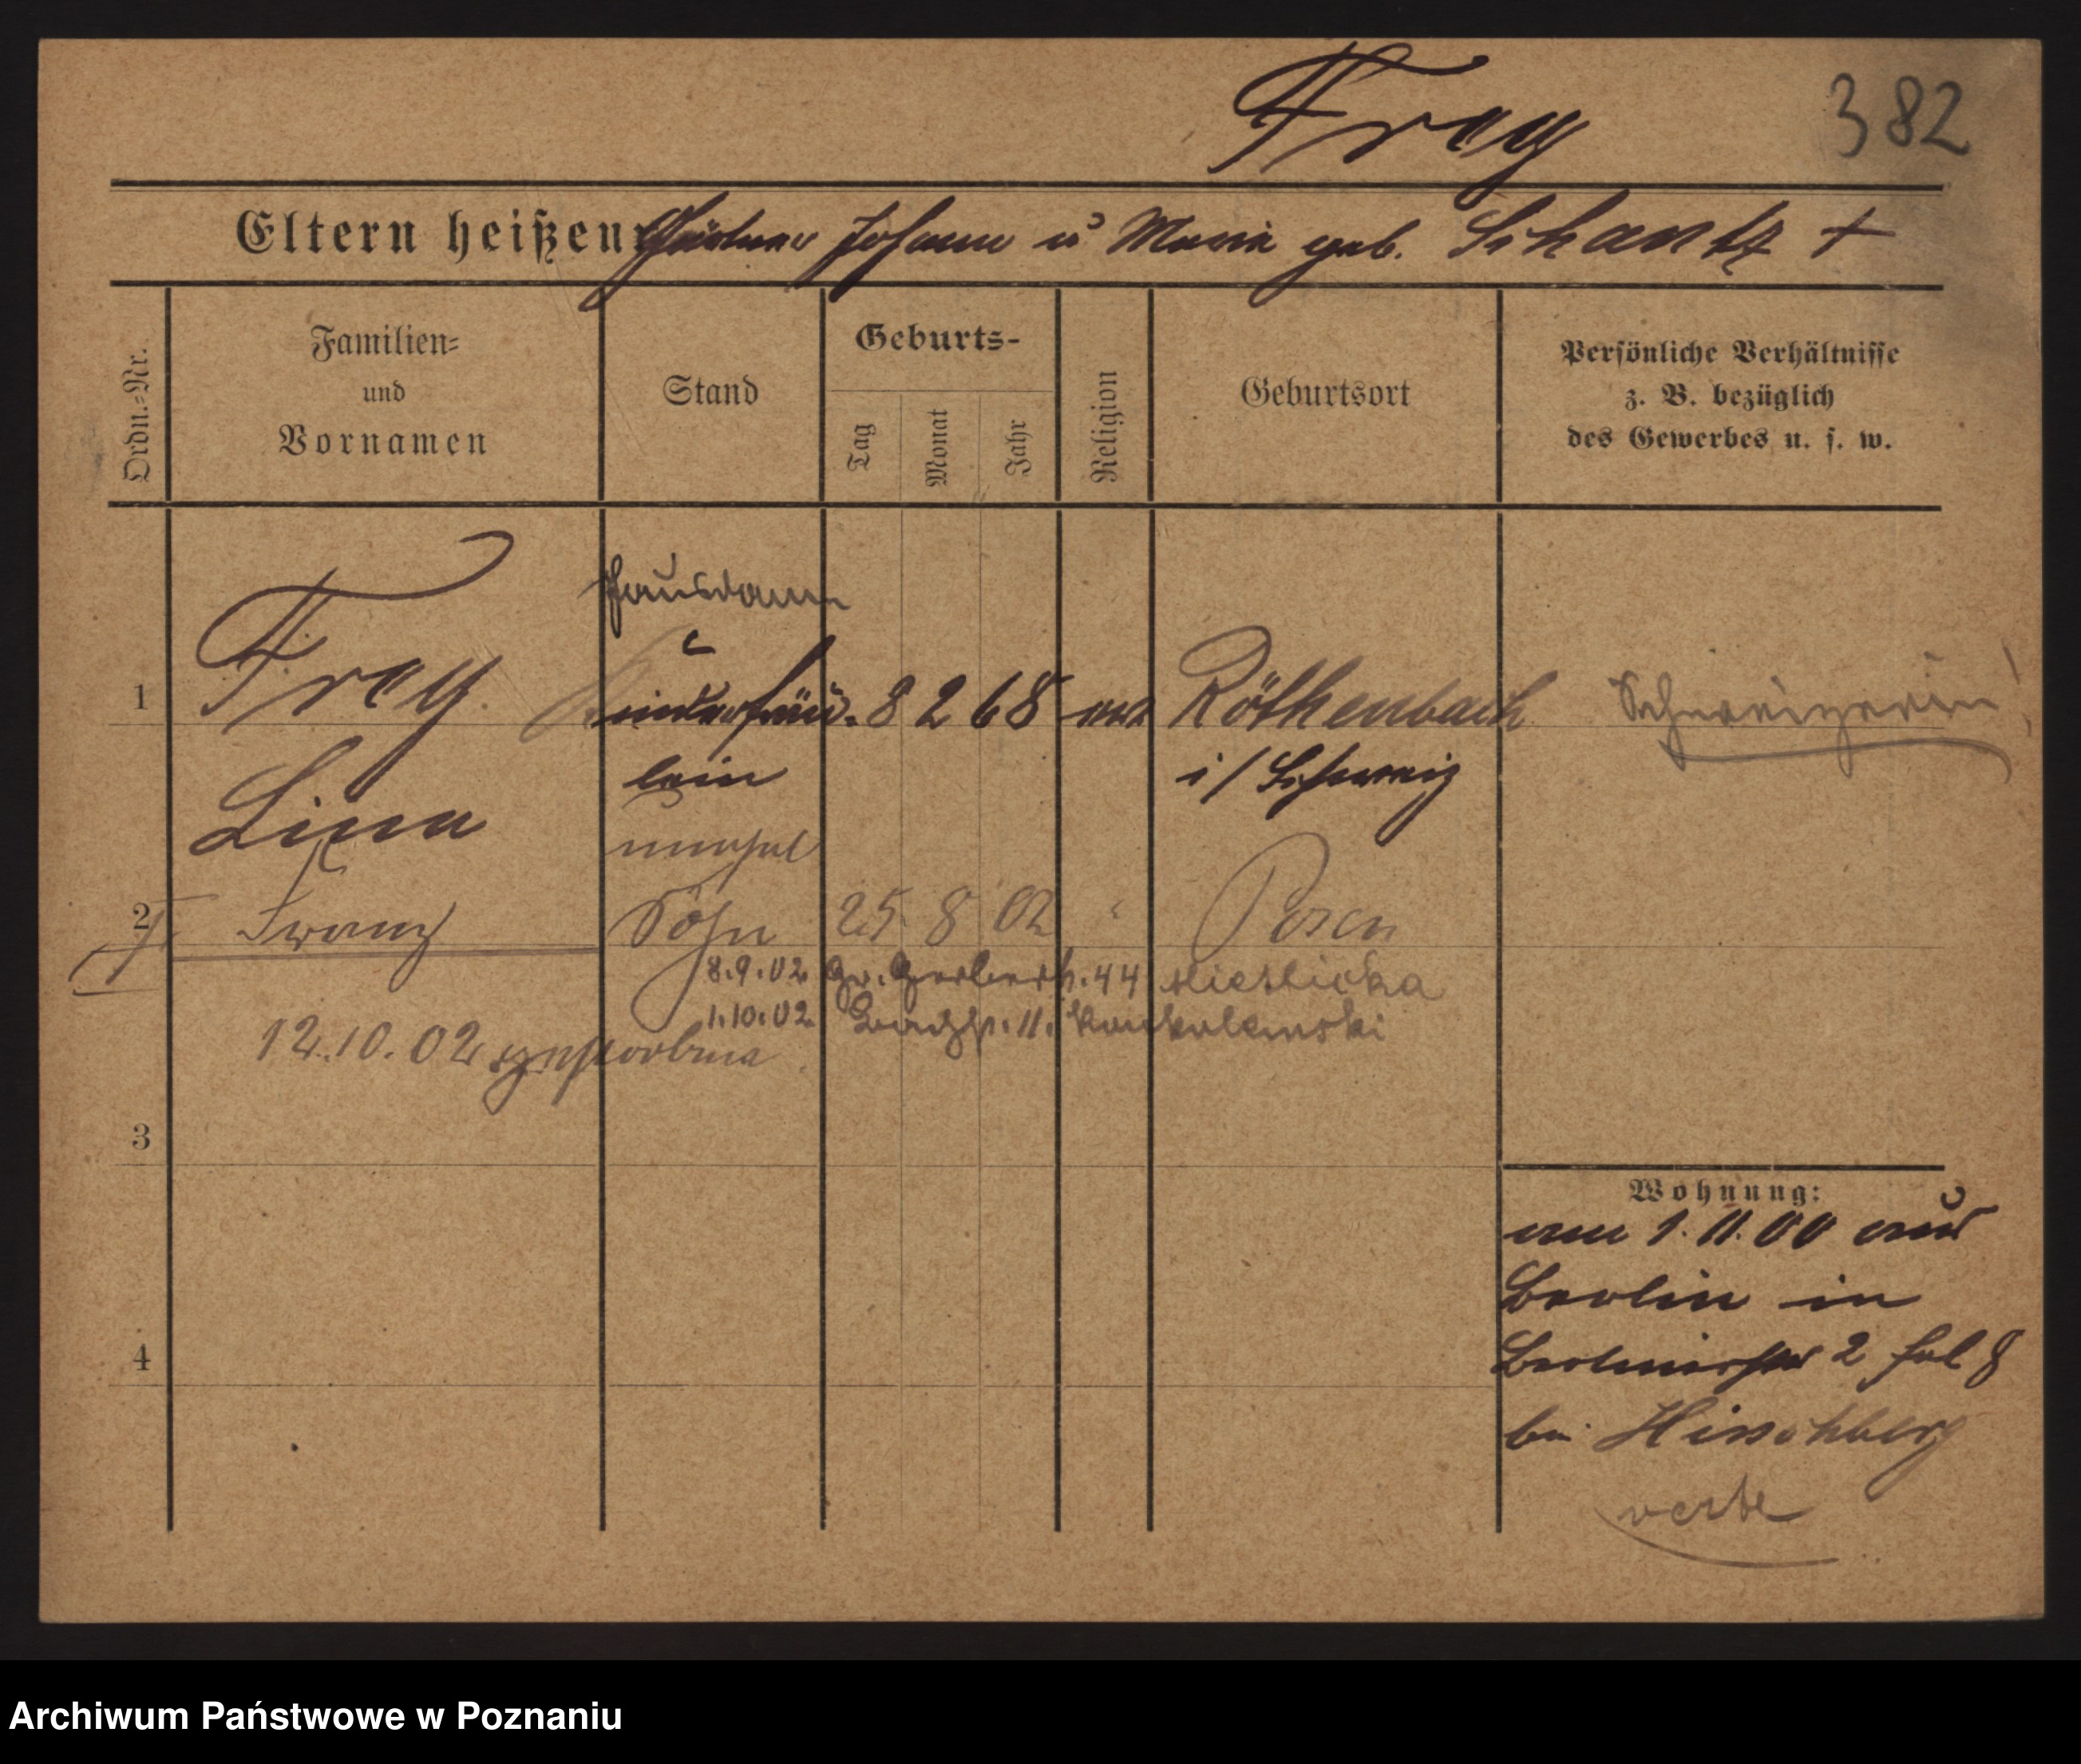 Frey
382
Eltern heißen: Gärtner Johann u Maria geb. Schantz +
Ordn.-Nr.
Familien-
und
Vornamen
Stand
Geburts-
Tag
Monat
Jahr
Religion
Geburtsort
Persönliche Verhältnisse
z. B. bezüglich
des Gewerbes u. s. w.
Hausdame
1 Frey Kinderfräu- 8 2 68 Röthenbach Schweizerin!
lein
i/Schweiz
Lina
unehel
2 Franz Sohn 25 8 02 " Posen
8.9.02 Gr. Gerberst. 44
1.10.02 11.
12.10.02 gestorben
3
4
Wohnung:
am 1.11.00 aus
Berlin in
Berlinerstr 2
bei Hirschberg
Archiwum Państwowe w Poznaniu